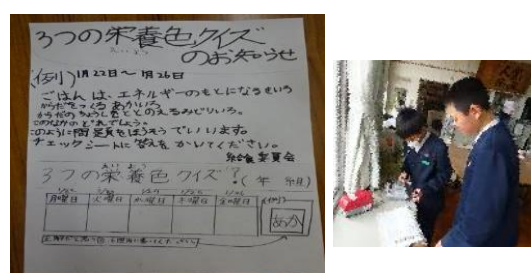 3つの栄養色クイズ
えいよう
のお知らせ
(例)1月22日～1月26日
ごはんは、エネルギーのもとになるきいろ
からだをつくるあかいろ
からだのちょうしをととのえるみどりいろ。
このなかのどれでしょう。
このように問題をほうそうでいいます。
チェックシートに答えをかいてください。
給食委員会
えいよう
3つの栄養色クイズ?(年 組)
月曜日 火曜日 水曜日 木曜日 金曜日
(例)
あか